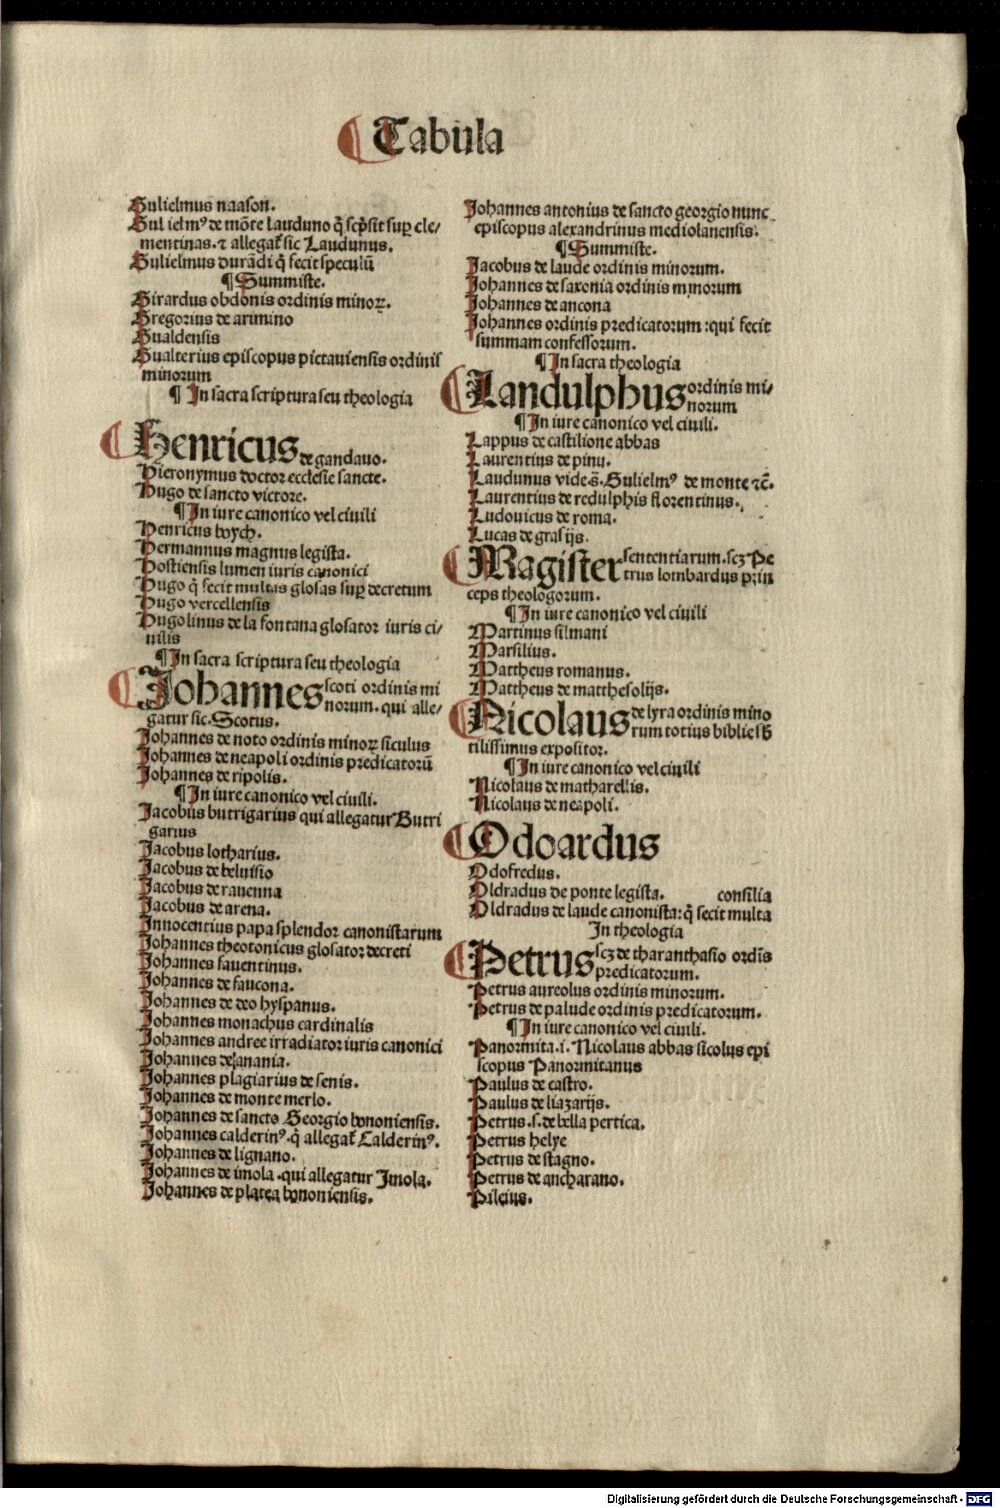 Tabula
Gulielmus naason.
Gulielmꝰ de mõte lauduno q̃ scp̃sit suꝑ cle/
mentinas. ⁊ allegat̃ sic Laudunus.
Gulielmus durãdi q̃ fecit speculũ
¶ Summiste.
Girardus obdonis ordinis minoꝝ.
Gregorius de arimino
Gualdensis
Gualterius episcopus pictauiensis ordinis
minorum
¶ In sacra scriptura seu theologia
Henricus de gandauo.
Hieronymus doctor ecclesie sancte.
Hugo de sancto victore.
¶ In iure canonico vel ciuili
Henricus boych.
Hermannus magnus legista.
Hostiensis lumen iuris canonici
Hugo q̃ fecit multas glosas suꝑ decretum
Hugo vercellensis
Hugolinus de la fontana glosator iuris ci/
uilis
¶ In sacra scriptura seu theologia
Johannes scoti ordinis mi
norum. qui alle/
gatur sic. Scotus.
Johannes de noto ordinis minoꝝ siculus
Johannes de neapoli ordinis predicatorũ
Johannes de ripolis.
¶ In iure canonico vel ciuili.
Jacobus butrigarius qui allegatur Butri
garius
Jacobus lotharius.
Jacobus de beluisio
Jacobus de rauenna
Jacobus de arena.
Innocentius papa splendor canonistarum
Johannes theotonicus glosator decreti
Johannes fauentinus.
Johannes de faucona.
Johannes de deo hyspanus.
Johannes monachus cardinalis
Johannes andree irradiator iuris canonici
Johannes de anania.
Johannes plagiarius de senis.
Johannes de monte merlo.
Johannes de sancto Georgio bononiensis.
Johannes calderinꝰ. q̃ allegat̃ Calderinꝰ.
Johannes de lignano.
Johannes de imola . qui allegatur Imola.
Johannes de platea bononiensis.
Johannes antonius de sancto georgio nunc
episcopus alexandrinus mediolanensis.
¶ Summiste.
Jacobus de laude ordinis minorum.
Johannes de saxonia ordinis minorum
Johannes de ancona
Johannes ordinis predicatorum : qui fecit
summam confessorum.
¶ In sacra theologia
Landulphus ordinis mi/
norum
¶ In iure canonico vel ciuili.
Lappus de castilione abbas
Laurentius de pinu.
Laudunus vide .s. Gulielmꝰ de monte ⁊c̃.
Laurentius de redulphis florentinus.
Ludouicus de roma.
Lucas de grassijs.
Magister sententiarum. scꝫ Pe
trus lombardus prin
ceps theologorum.
¶ In iure canonico vel ciuili
Martinus silmani
Marsilius.
Mattheus romanus.
Mattheus de matthesolijs.
Nicolaus de lyra ordinis mino
rum totius biblie sb
tilissimus expositor.
¶ In iure canonico vel ciuili
Nicolaus de matharellis.
Nicolaus de neapoli.
Odoardus
Odofredus.
Oldradus de ponte legista. consilia
Oldradus de laude canonista: q̃ fecit multa
In theologia
Petrus scꝫ de tharanthasio ordĩs
predicatorum.
Petrus aureolus ordinis minorum.
Petrus de palude ordinis predicatorum.
¶ In iure canonico vel ciuili.
Panormita .i. Nicolaus abbas sicolus epi
scopus Panormitanus
Paulus de castro.
Paulus de liazarijs.
Petrus .s. de bella pertica.
Petrus helye
Petrus de stagno.
Petrus de ancharano.
Pileius.
Digitalisierung gefördert durch die Deutsche Forschungsgemeinschaft - DFG